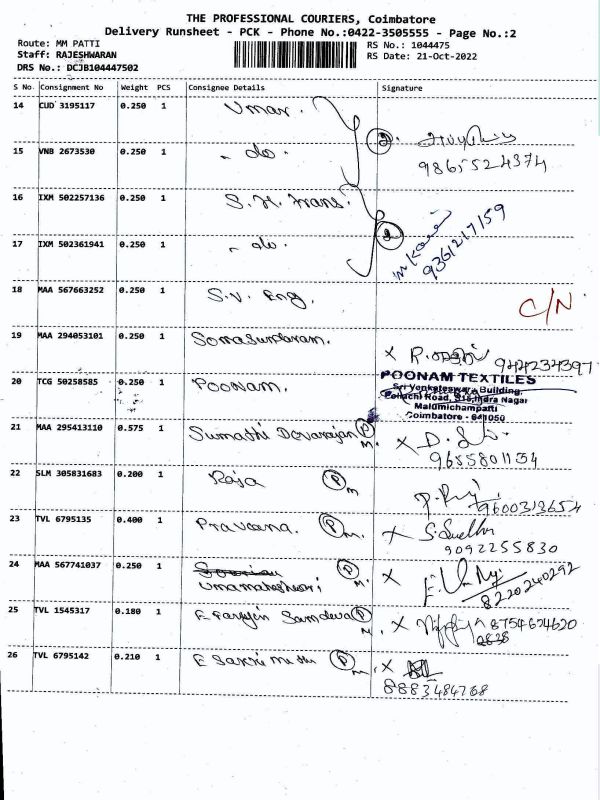 THE PROFESSIONAL COURIERS, Coimbatore
Delivery Runsheet - PCK - Phone No.:0422-3505555 - Page No.:2
Route: MM PATTI
RS No.: 1044475
Staff: RAJESHWARAN
RS Date: 21-Oct-2022
DRS No.: DCJB104447502
S No. Consignment No Weight PCS Consignee Details Signature
14 CUD 3195117 0.250 1 Umar.
15 VNB 2673530 0.250 1 - do -
9865524374
16 IXM 502257136 0.250 1 S. K. Trans.
17 IXM 502361941 0.250 1 - do -
9361217159
18 MAA 567663252 0.250 1 S.V. Eng. C/N
19 MAA 294053101 0.250 1 Somasundaram. X
20 TCG 50258585 0.250 1 Poonam.
POONAM TEXTILES
Sri Venkateswara Building,
Pollachi Road, Indra Nagar
Malumichampatti
Coimbatore - 641050
21 MAA 295413110 0.575 1 Sumathi Devarajan P M. X
9655801134
22 SLM 305831683 0.200 1 Raja P M
9600313654
23 TVL 6795135 0.400 1 Praveena. P M. X S. Sudha
9092255830
24 MAA 567741037 0.250 1 Umamaheshwari P M. X
8220240292
25 TVL 1545317 0.180 1 E P M. X 8754624620
26 TVL 6795142 0.210 1 E Sakthi P M. X
8883484768